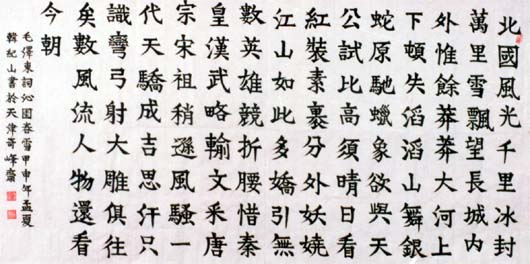 北國風光千里冰封
萬里雪飄望長城內
外惟餘莽莽大河上
下頓失滔滔山舞銀
蛇原馳蠟象欲與天
公試比高須晴日看
紅裝素裹分外妖嬈
江山如此多嬌引無
數英雄競折腰惜秦
皇漢武略輸文采唐
宗宋祖稍遜風騷一
代天驕成吉思汗只
識彎弓射大雕俱往
矣數風流人物還看
今朝
毛澤東詞沁園春雪甲申年孟夏
韓紀山書於天津奇峰齋